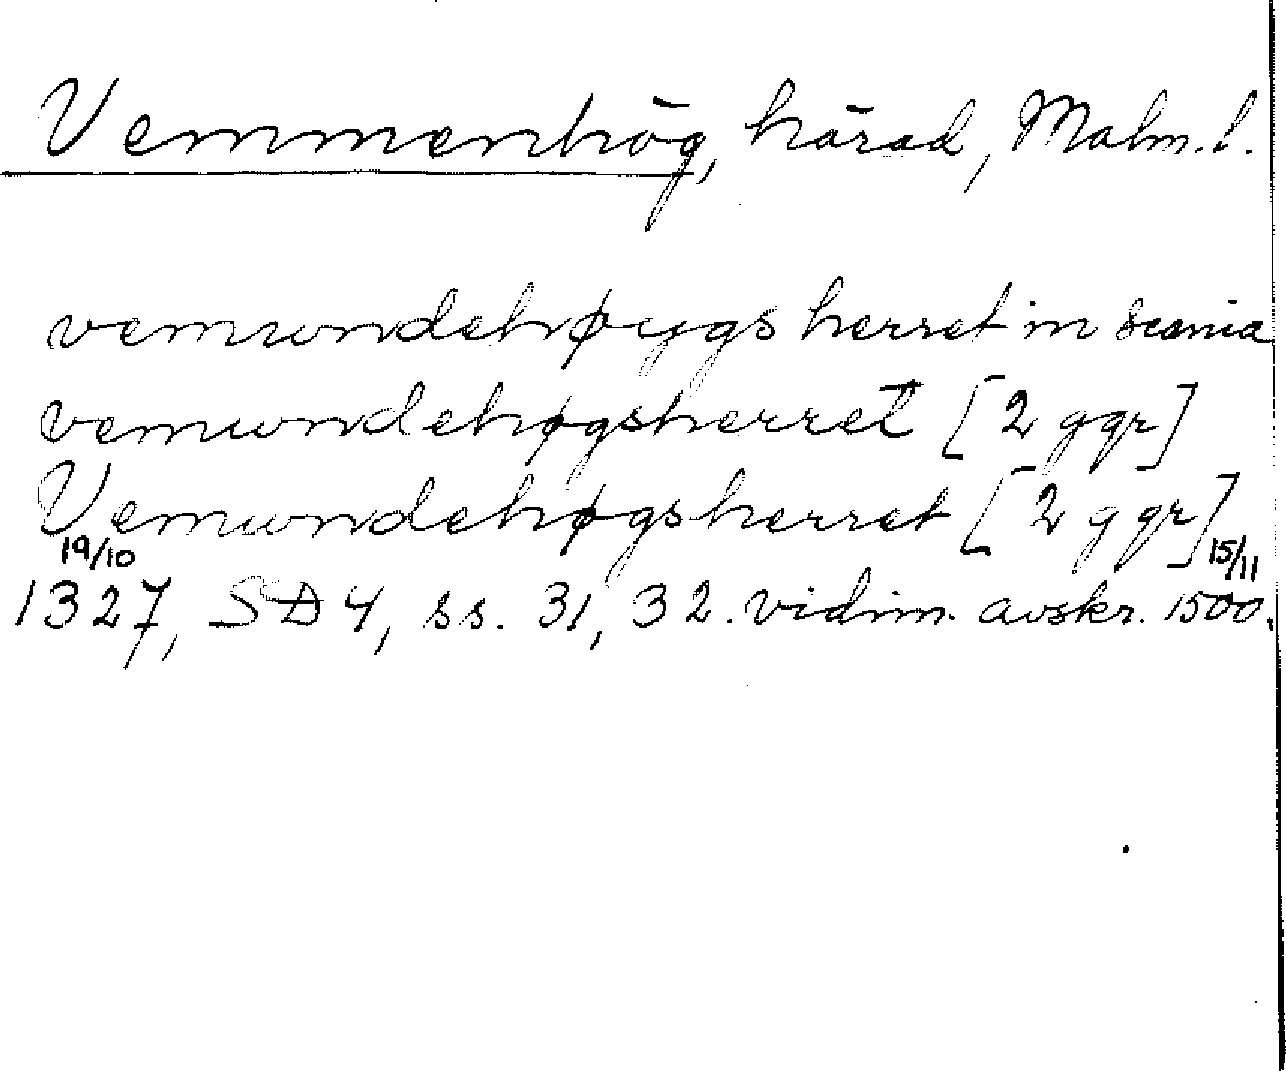 Vemmenhög, härad, Malm. l.
vemundehøygs herret in scania
vemundehøgsherret [2 ggr]
Vemundehøgsherret [2 ggr]
19/10 15/11
1327, SD 4, ss. 31, 32. vidim. avskr. 1500.